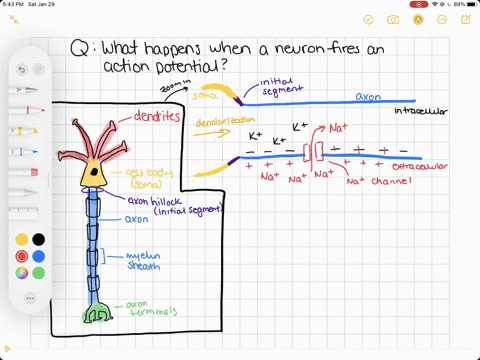 5:43 PM Sat Jan 29
89%
Q: What happens when a neuron fires an
action potential?
zoom in
soma
initial
segment
axon
intracellular
dendrites
depolarization
K+
K+
K+
Na+
− − − − + − −
+ + + + + + +
extracellular
Na+ Na+ Na+ Na+ channel
cell body
(soma)
axon hillock
(initial segment)
axon
myelin
sheath
axon
terminals